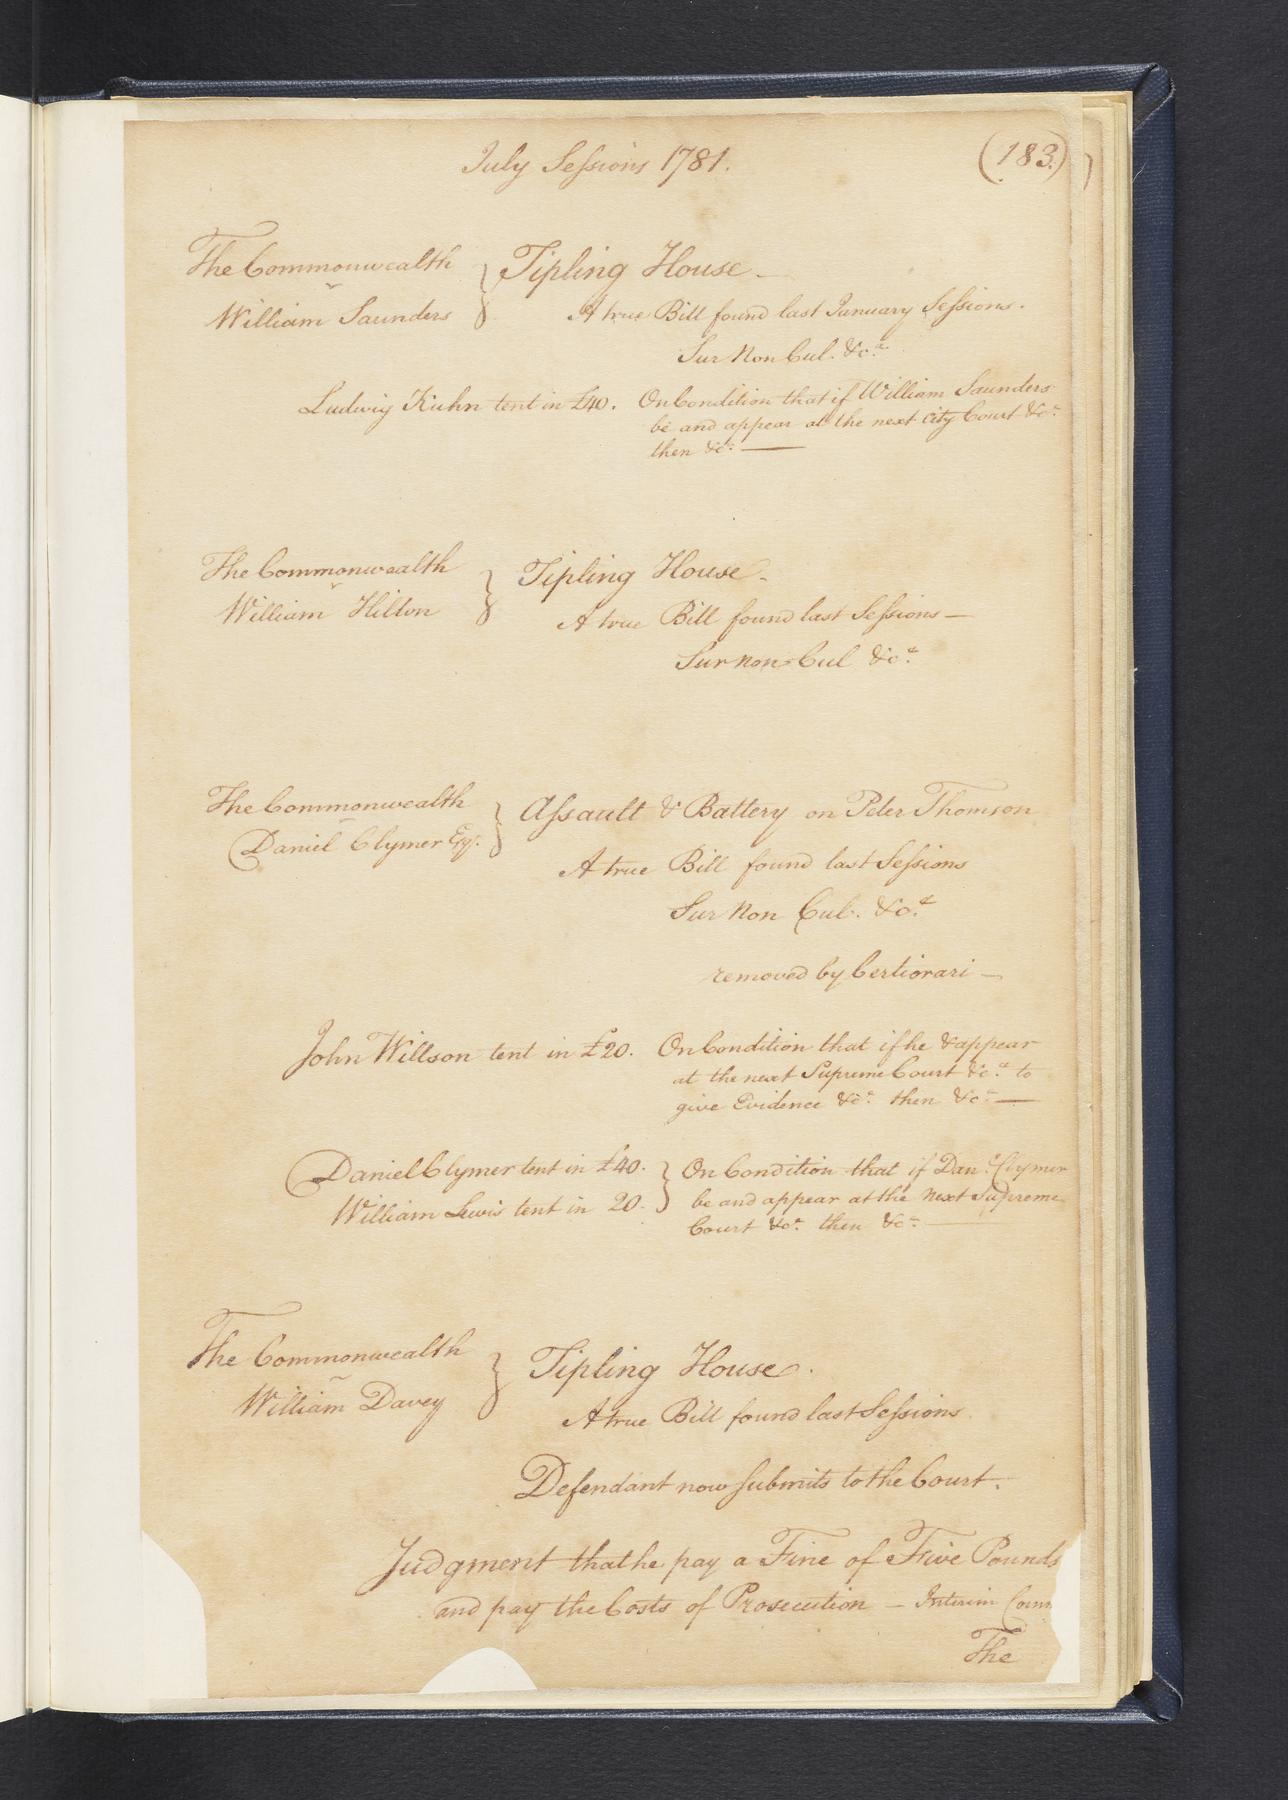 July Sessions 1781.
(183.)
The Commonwealth } Tipling House_
v
William Saunders
A true Bill found last January Sessions.
Sur Non Cul. &ca.
Ludwig Kuhn tent in £40. On Condition that if William Saunders
be and appear at the next City Court &ca.
then &ca. —
The Commonwealth } Tipling House_
v
William Hilton
A true Bill found last Sessions —
Sur non Cul &ca.
The Commonwealth } Assault & Battery on Peter Thomson
v
Daniel Clymer Esqr.
A true Bill found last Sessions
Sur Non Cul. &ca.
removed by Certiorari —
John Willson tent in £20. On Condition that if he & appear
at the next Supreme Court &ca. to
give Evidence &ca. then &ca. —
Daniel Clymer tent in £40. } On Condition that if Danl. Clymer
William Lewis tent in 20. be and appear at the next Supreme
Court &ca. then &ca. —
The Commonwealth } Tipling House.
v
William Davey
A true Bill found last Sessions.
Defendant now submits to the Court.
Judgment that he pay a Fine of Five Pounds
and pay the Costs of Prosecution — Interim
The